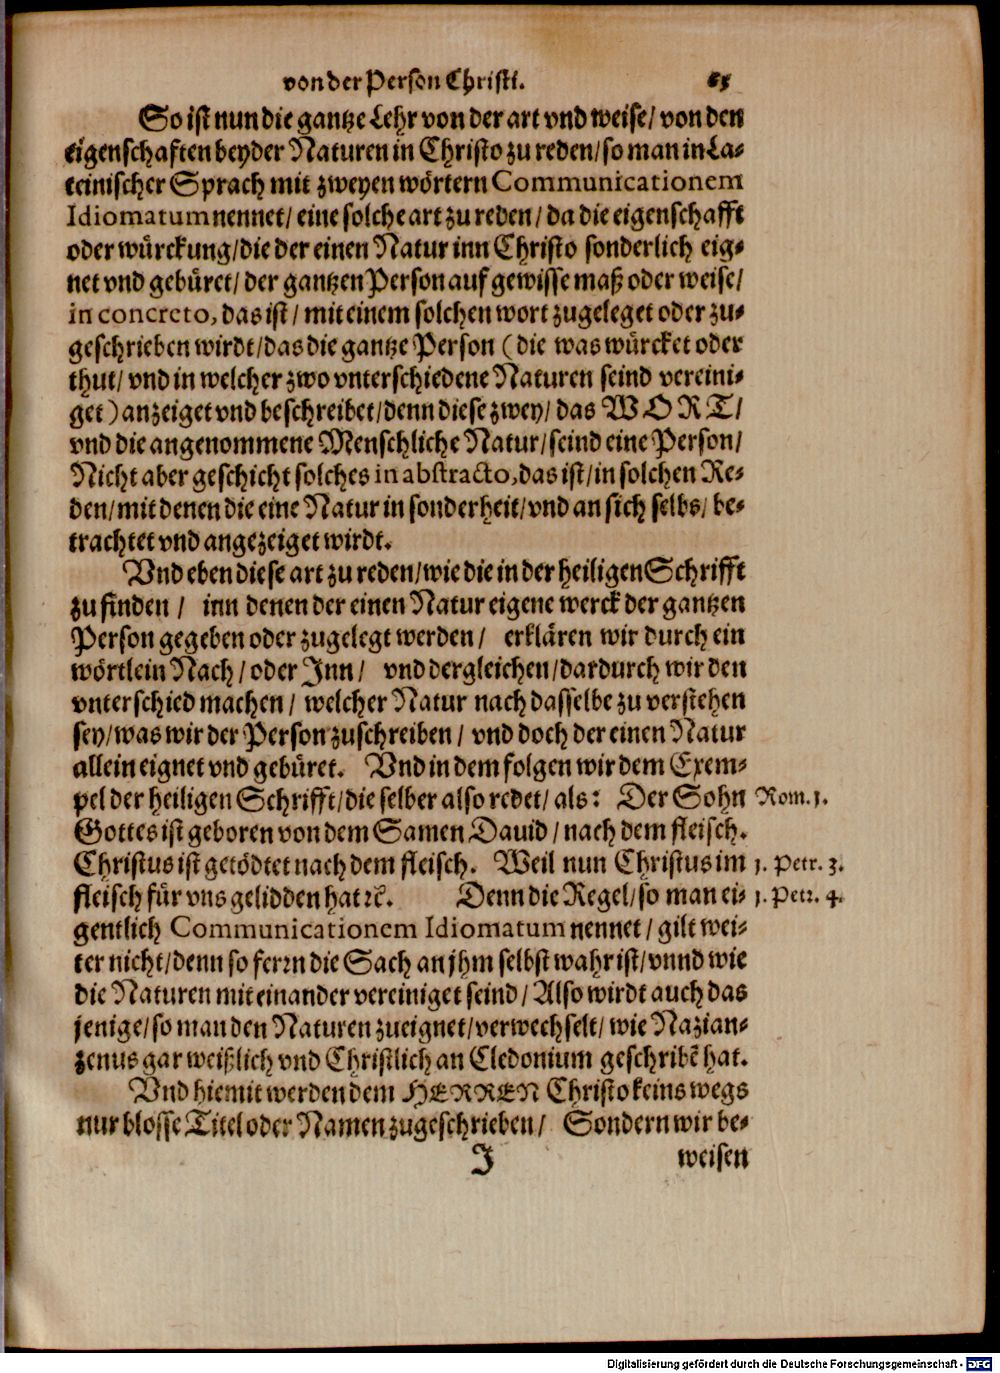 von der Person Christi. 65
So ist nun die gantze Lehr von der art vnd weise/ von den
eigenschaften beyder Naturen in Christo zu reden/ so man in La-
teinischer Sprach mit zweyen wörtern Communicationem
Idiomatum nennet/ eine solche art zu reden/ da die eigenschafft
oder würckung/ die der einen Natur inn Christo sonderlich eig-
net vnd gebüret/ der gantzen Person auf gewisse maß oder weise/
in concreto, das ist/ mit einem solchen wort zugeleget oder zu-
geschrieben wirdt/ das die gantze Person (die was würcket oder
thut/ vnd in welcher zwo vnterschiedene Naturen seind vereini-
get) anzeiget vnd beschreibet/ denn diese zwey/ das WORT/
vnd die angenommene Menschliche Natur/ seind eine Person/
Nicht aber geschicht solches in abstracto, das ist/ in solchen Re-
den/ mit denen die eine Natur in sonderheit/ vnd an sich selbs/ be-
trachtet vnd angezeiget wirdt.
Vnd eben diese art zu reden/ wie die in der heiligen Schrifft
zu finden/ inn denen der einen Natur eigene werck der gantzen
Person gegeben oder zugelegt werden/ erklären wir durch ein
wörtlein Nach/ oder Inn/ vnd dergleichen/ dardurch wir den
vnterschied machen/ welcher Natur nach dasselbe zu verstehen
sey/ was wir der Person zuschreiben/ vnd doch der einen Natur
allein eignet vnd gebüret. Vnd in dem folgen wir dem Exem-
pel der heiligen Schrifft/ die selber also redet/ als: Der Sohn Rom. 1.
Gottes ist geboren von dem Samen Dauid/ nach dem fleisch.
Christus ist getödtet nach dem fleisch. Weil nun Christus im 1. Petr. 3.
fleisch für vns gelidden hat ꝛc. Denn die Regel/ so man ei- 1. Petr. 4.
gentlich Communicationem Idiomatum nennet/ gilt wei-
ter nicht/ denn so ferrn die Sach an jhm selbst wahr ist/ vnnd wie
die Naturen mit einander vereiniget seind/ Also wirdt auch das
jenige/ so man den Naturen zueignet/ verwechselt/ wie Nazian-
zenus gar weißlich vnd Christlich an Cledonium geschribẽ hat.
Vnd hiemit werden dem HERREN Christo keins wegs
nur blosse Titel oder Namen zugeschrieben/ Sondern wir be-
J weisen
Digitalisierung gefördert durch die Deutsche Forschungsgemeinschaft - DFG